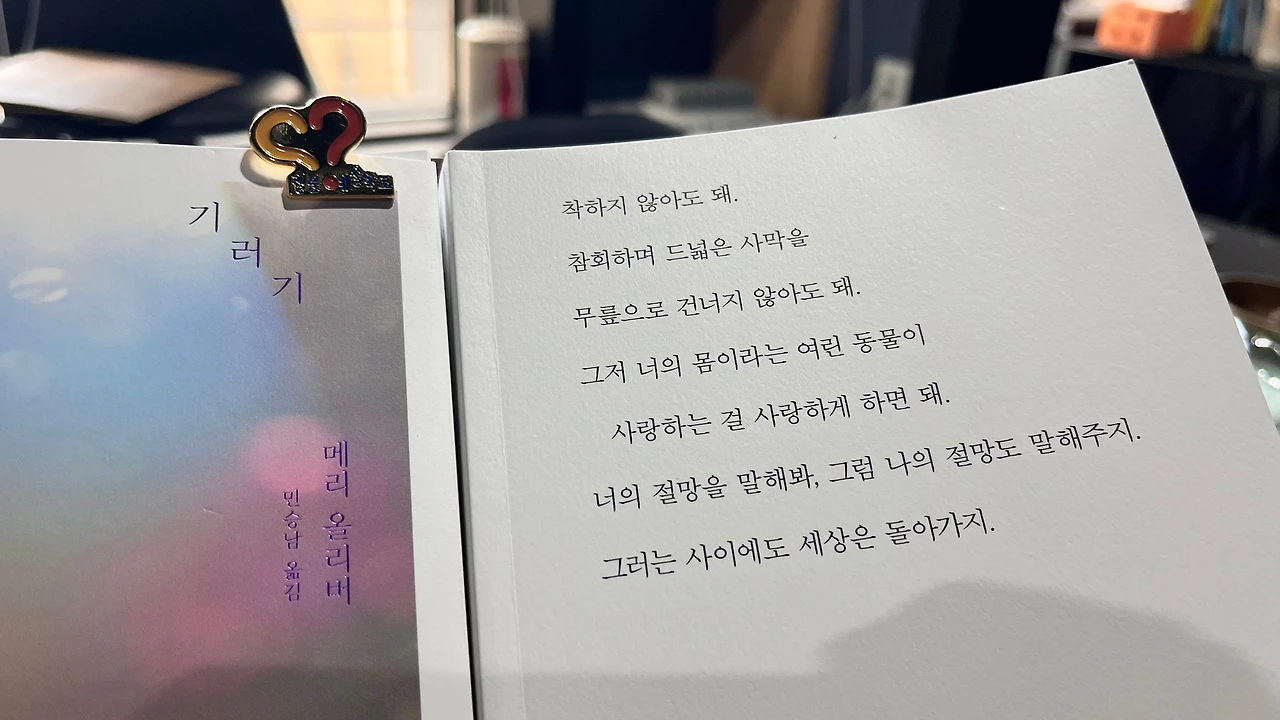 기러기
메리 올리버
민승남 옮김
착하지 않아도 돼.
참회하며 드넓은 사막을
무릎으로 건너지 않아도 돼.
그저 너의 몸이라는 여린 동물이
사랑하는 걸 사랑하게 하면 돼.
너의 절망을 말해봐, 그럼 나의 절망도 말해주지.
그러는 사이에도 세상은 돌아가지.